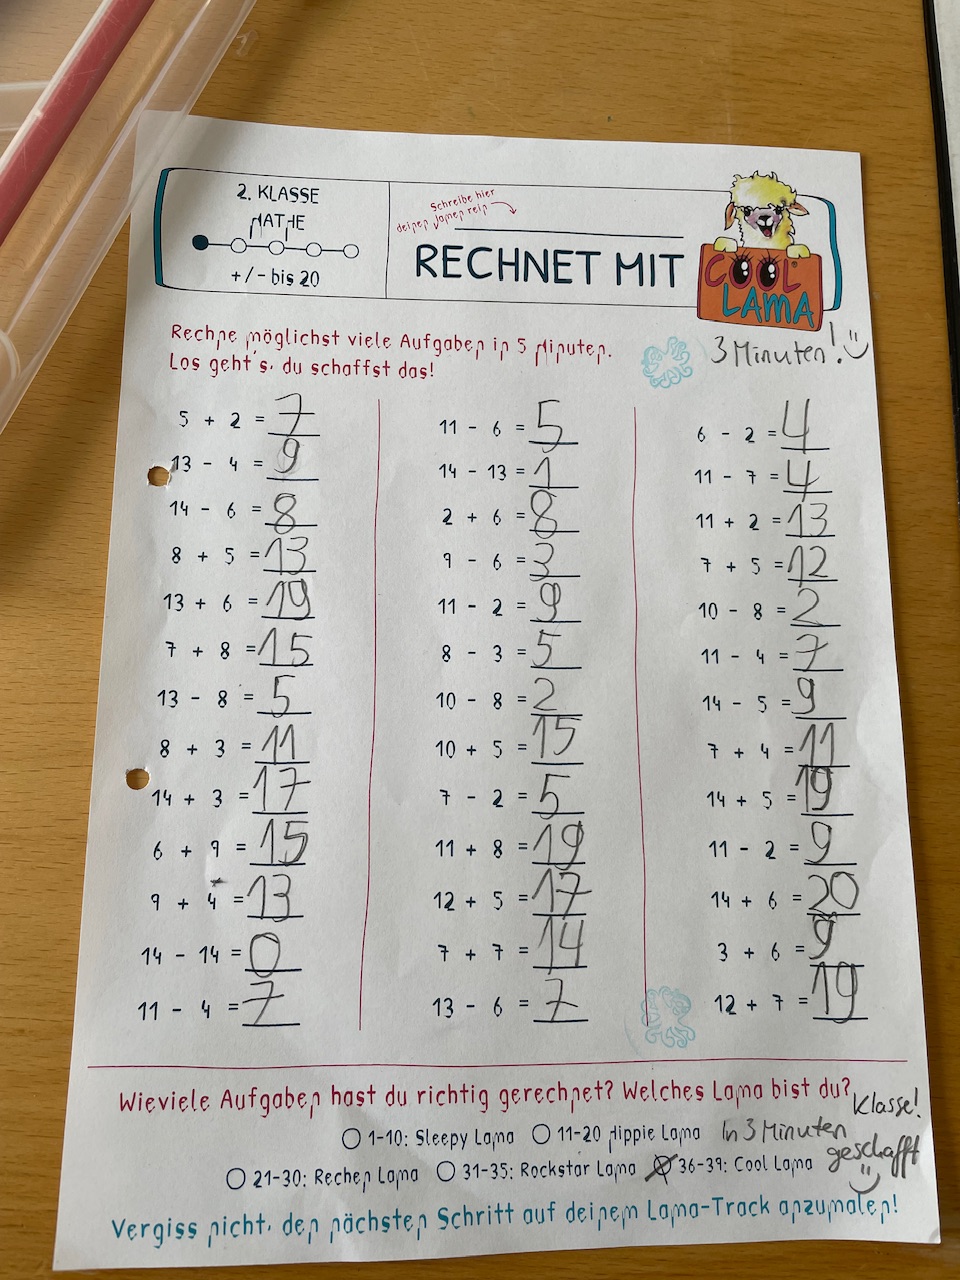 2. KLASSE
MATHE
+/- bis 20
Schreibe hier
deinen Namen rein
RECHNET MIT
COOL
LAMA
Rechne möglichst viele Aufgaben in 5 Minuten.
Los geht's, du schaffst das!
3 Minuten!
5 + 2 = 7
13 - 4 = 9
14 - 6 = 8
8 + 5 = 13
13 + 6 = 19
7 + 8 = 15
13 - 8 = 5
8 + 3 = 11
14 + 3 = 17
6 + 9 = 15
9 + 4 = 13
14 - 14 = 0
11 - 4 = 7
11 - 6 = 5
14 - 13 = 1
2 + 6 = 8
9 - 6 = 3
11 - 2 = 9
8 - 3 = 5
10 - 8 = 2
10 + 5 = 15
7 - 2 = 5
11 + 8 = 19
12 + 5 = 17
7 + 7 = 14
13 - 6 = 7
6 - 2 = 4
11 - 7 = 4
11 + 2 = 13
7 + 5 = 12
10 - 8 = 2
11 - 4 = 7
14 - 5 = 9
7 + 4 = 11
14 + 5 = 19
11 - 2 = 9
14 + 6 = 20
3 + 6 = 9
12 + 7 = 19
Wieviele Aufgaben hast du richtig gerechnet? Welches Lama bist du?
1-10: Sleepy Lama 11-20 Hippie Lama
21-30: Rechen Lama 31-35: Rockstar Lama 36-39: Cool Lama
Klasse!
In 3 Minuten
geschafft
Vergiss nicht, den nächsten Schritt auf deinem Lama-Track anzumalen!